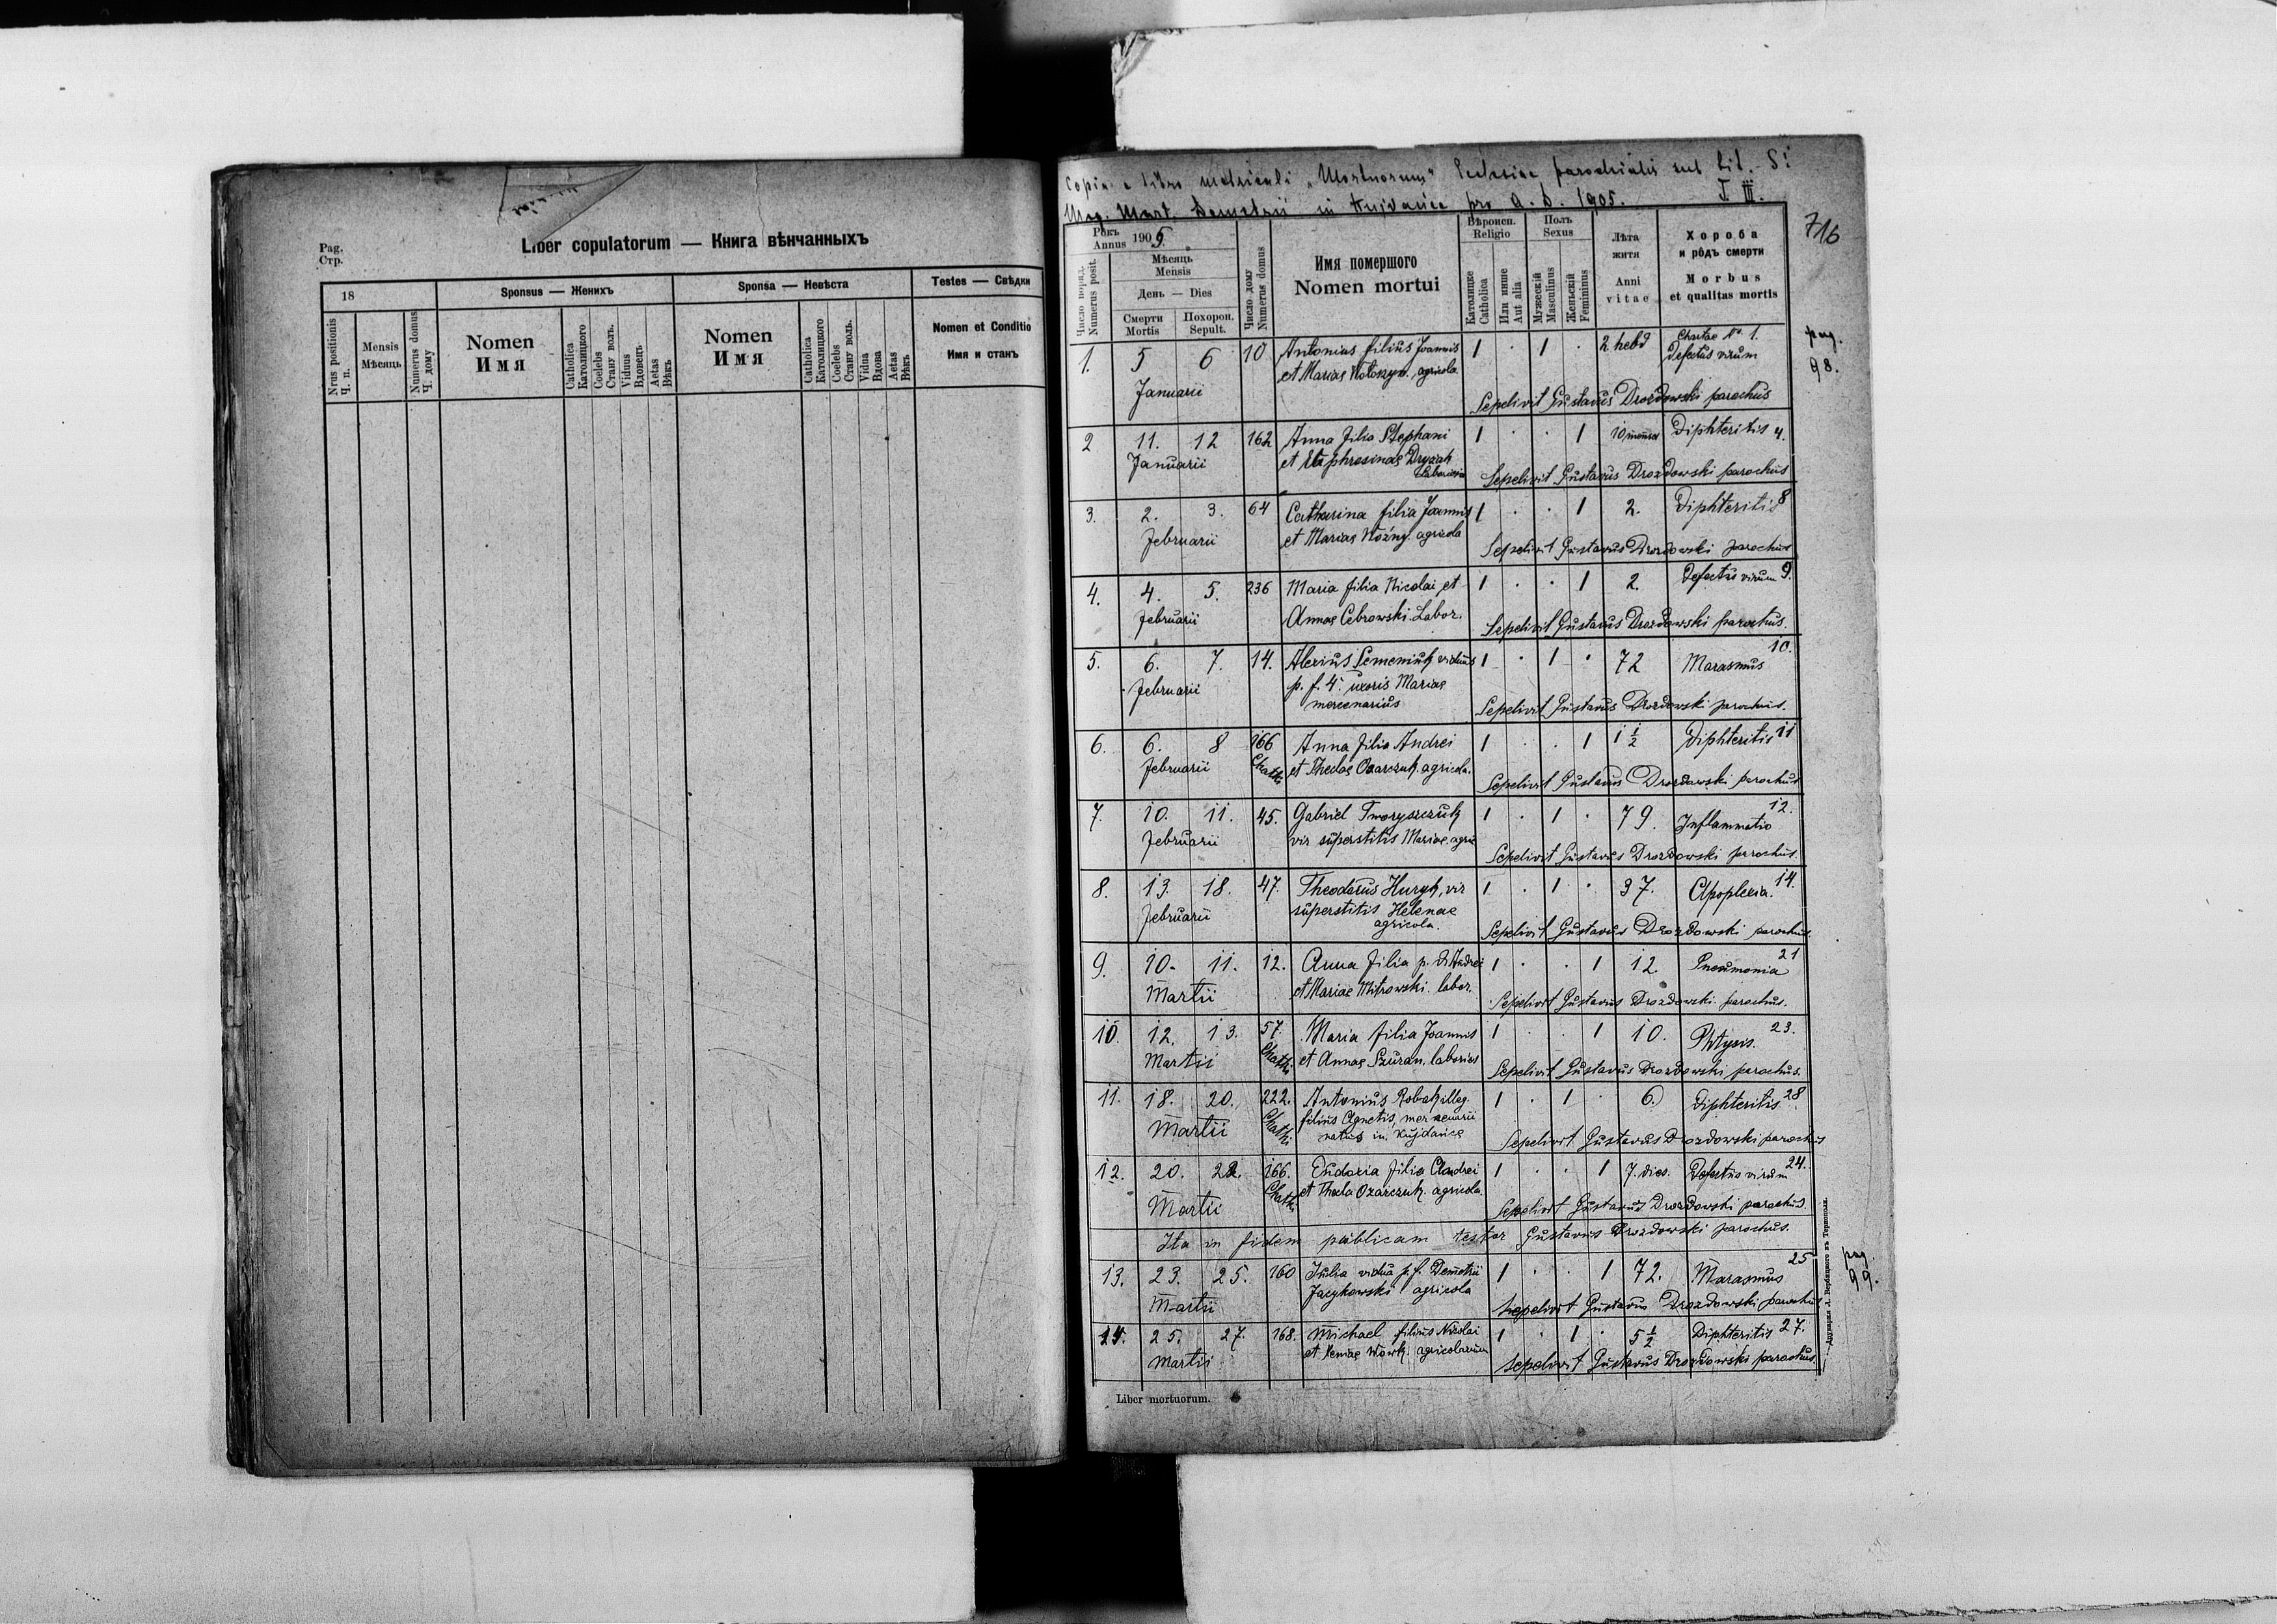 Pag.
Стр.
Liber copulatorum — Книга вѣнчанныхъ
18
Sponsus — Женихъ
Sponsa — Невѣста
Testes — Свѣдки
Nrus positionis
Ч. п.
Mensis
Мѣсяць
Numerus domus
Ч. дому
Nomen
Имя
Catholica
Католицкого
Coelebs
Стану волъ.
Viduus
Вдовець
Aetas
Вѣкъ
Nomen
Имя
Catholica
Католицкого
Coelebs
Стану волъ.
Vidua
Вдова
Aetas
Вѣкъ
Nomen et Conditio
Имя и станъ
Copia e libro metricali „Mortuorum" Ecclesiae parochialis sub tit. S.
Mag. Mart. Demetrii in Kujdańce pro A. D. 1905. T. III.
716
Рокъ
Annus 1905.
Число поряд.
Numerus posit.
Мѣсяць
Mensis
День — Dies
Смерти
Mortis
Похорон.
Sepult.
Число дому
Numerus domus
Имя помершого
Nomen mortui
Вѣроисп.
Religio
Католицке
Catholica
Или инше
Aut alia
Полъ
Sexus
Мужескій
Masculinus
Женьскій
Femininus
Лѣта
житя
Anni
vitae
Хороба
и рôдъ смерти
Morbus
et qualitas mortis
1. 5 6 10 Antonius filius Joannis 1 . 1 . 2 hebd Chartae No. 1. pag.
Januarii et Mariae Wołoszyn. agricola Defectus virium 98.
Sepelivit Gustavus Drozdowski parochus
2 11. 12 162 Anna filia Stephani 1 . . 1 10 menses Diphteritis 4.
Januarii et Euphrosinae
Sepelivit Gustavus Drozdowski parochus
3. 2. 3. 64 Catharina filia Joannis 1 . . 1 2. Diphteritis 8
Februarii et Mariae Woźny. agricola
Sepelivit Gustavus Drozdowski parochus
4. 4. 5. 236 Maria filia Nicolai et 1 . . 1 2. Defectus virium 9.
Februarii Annae Cebrowski Labor.
Sepelivit Gustavus Drozdowski parochus.
5. 6. 7. 14. Alexius Semeniuk viduus 1 . 1 . 72 Marasmus 10.
Februarii p. f. 4. uxoris Mariae
mercenarius Sepelivit Gustavus Drozdowski parochus.
6. 6. 8 166 Anna filia Andrei 1 . . 1 1 1/2 Diphteritis 11
Februarii Chatki et Theclae Ozarczuk. agricola.
Sepelivit Gustavus Drozdowski parochus
7. 10. 11. 45. Gabriel Tworyszczuk 1 . 1 . 79. Inflammatio 12.
Februarii vir superstitis Mariae agric
Sepelivit Gustavus Drozdowski parochus.
8. 13. 18. 47. Theodorus Huryk, vir 1 . 1 . 37. Apoplexia. 14.
Februarii superstitis Helenae
agricola. Sepelivit Gustavus Drozdowski parochus
9. 10. 11. 12. Anna filia p. d. Andrei 1 . . 1 12. Pneumonia 21
Martii et Mariae Mitrowski. labor.
Sepelivit Gustavus Drozdowski. parochus.
10. 12. 13. 57. Maria filia Joannis 1 . . 1 10. Phtysis. 23.
Martii Chatki et Annae Szuran. laborios
Sepelivit Gustavus Drozdowski parochus.
11. 18. 20. 222. Antonius Robak illeg. 1 . 1 . 6. Diphteritis 28.
Martii Chatki filius Agnetis, mercenarii
natus in Kujdańce Sepelivit Gustavus Drozdowski parochus
12. 20. 22. 166. Eudoxia filia Andrei 1 . . 1 7. dies. Defectus virium 24.
Martii Chatki et Thecla Ozarczuk. agricola.
Sepelivit Gustavus Drozdowski parochus.
Ita in fidem publicam testor Gustavus Drozdowski parochus.
13. 23. 25. 160 Julia vidua p. f. Demetrii 1 . . 1 72. Marasmus 25 pag.
Martii Jacykowski agricola 99.
Sepelivit Gustavus Drozdowski parochus
14. 25. 27. 168. Michael filius Nicolai 1 . 1 . 5 1/2 Diphteritis 27.
Martii et Xeniae Wowk. agricolarum
Sepelivit Gustavus Drozdowski parochus.
Liber mortuorum.
Друкарня Л. Вербицкого въ Тернополи.